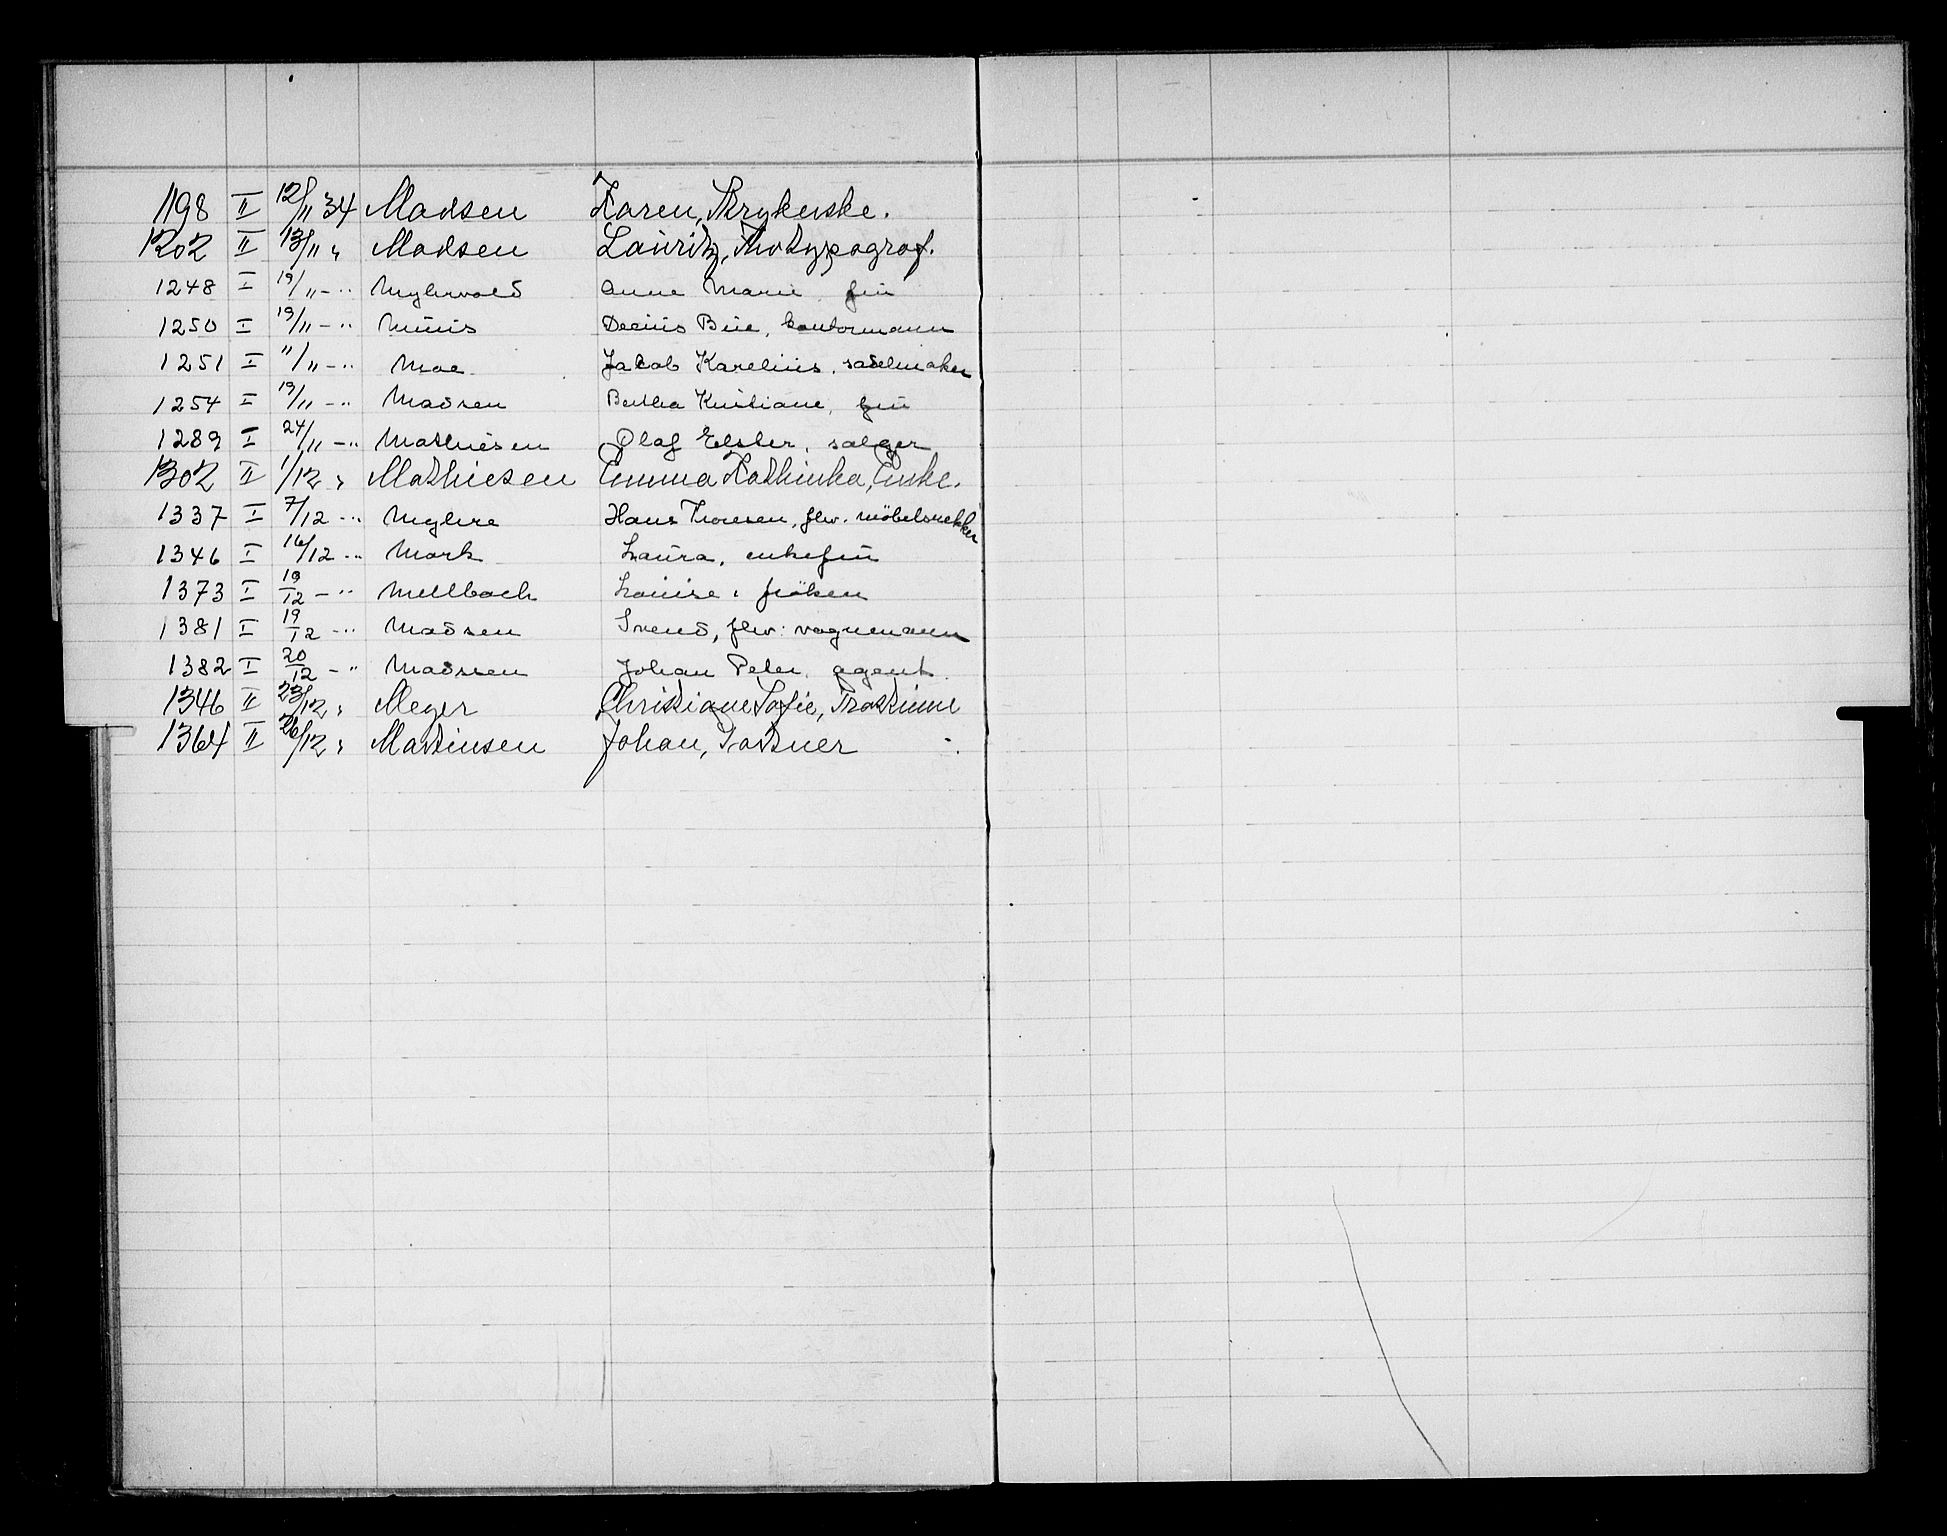 1198 II 12/11 34 Madsen Karen, Strykerske.
1202 II 13/11 " Madsen Lauritz, Fhv typograf.
1248 I 19/11 - " Myhrvold Anne Marie, fru
1250 I 19/11 - " Decius Bie, kontormann
1251 I "/11 - " Moe Jakob Karelius, sadelmaker
1254 I 19/11 - " Madsen Bertha Kristiane, fru
1289 I 24/11 - " Mathiesen Olaf Elster, selger
1302 II 1/12 " Mathiesen Emma Kathinka, Enke.
1337 I 7/12 - " Myhre Hans Thoresen, fhv. möbelsnekker
1346 I 16/12 " Mork Laura, enkefru
1373 I 19/12 - " Mellbach Louise, fröken
1381 I 19/12 - " Madsen Svend, fhv. vognmann
1382 I 20/12 - " Madssen Johan Peter, agent.
1346 II 23/12 " Meyer Christiane Sofie,
1364 II 26/12 " Martinsen Johan, Gartner